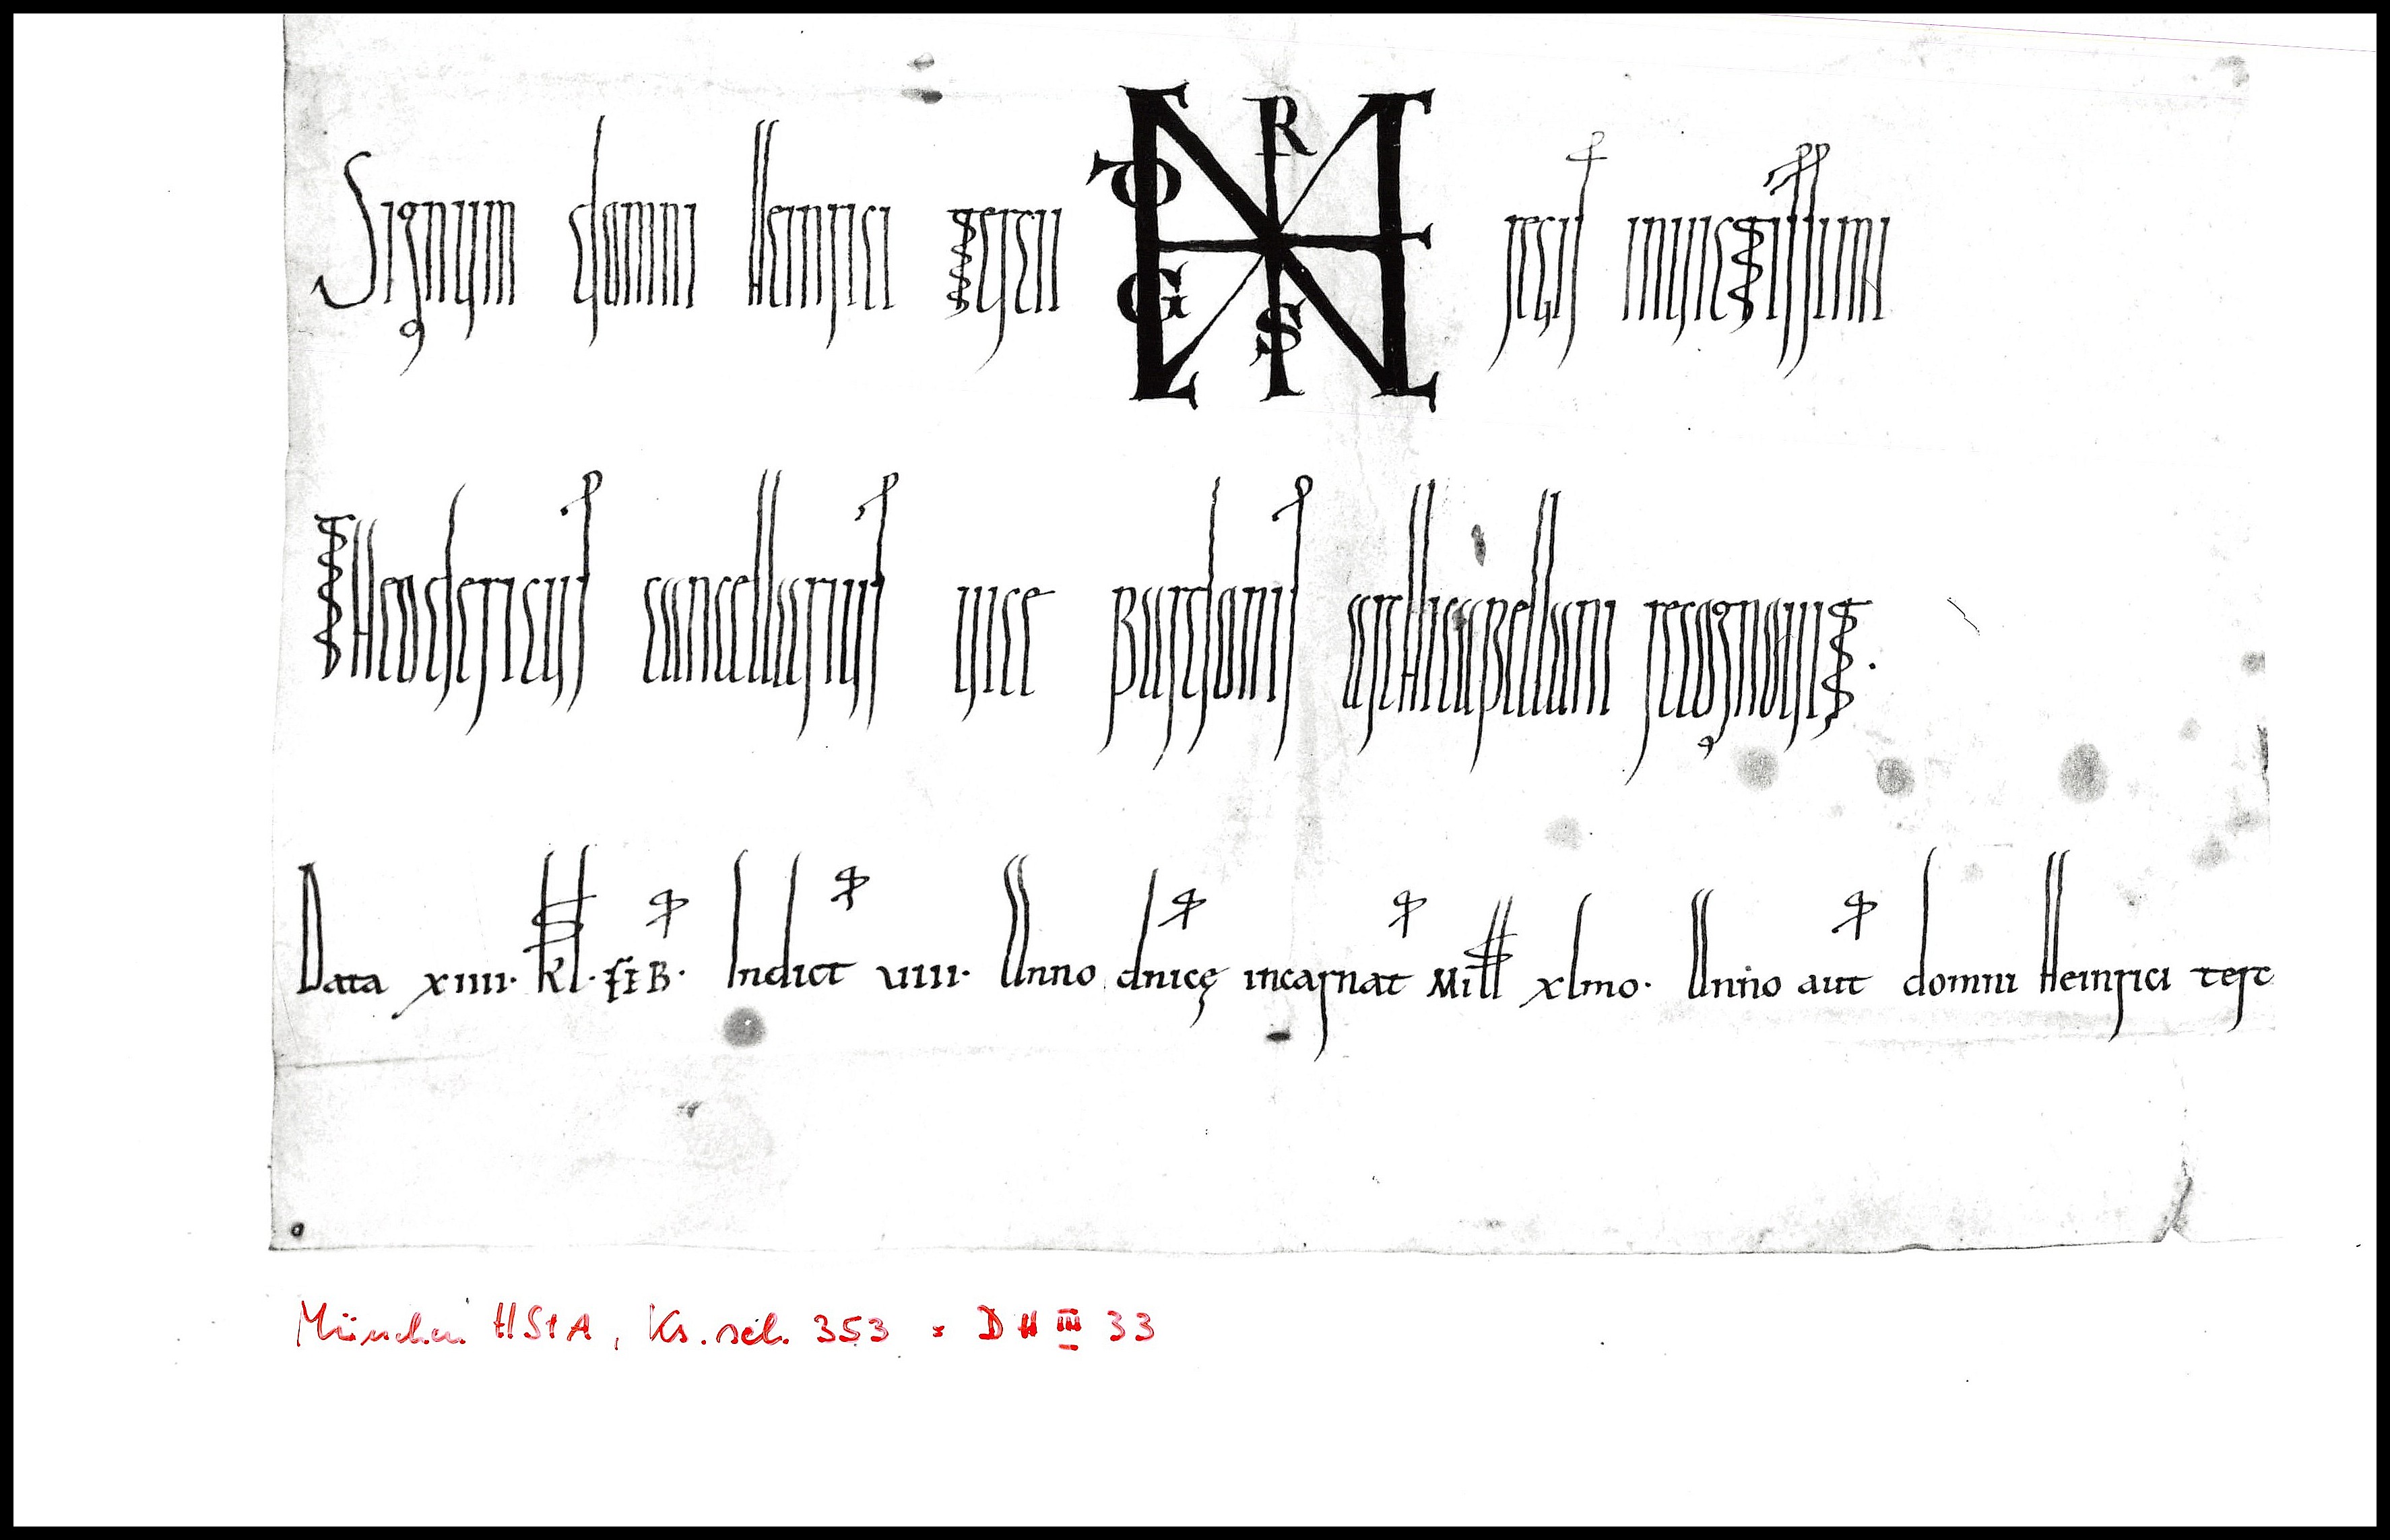 Signum domni Heinrici tercii R D G S regis inuictissimi
Theodericus cancellarius uice Bardonis archicapellani recognouit.
Data xiiii. kl. feb. Indict viiii. Anno dnicę incarnat Mill xlmo. Anno aut domni Heinrici terc
München HStA, Ks. sel. 353 = D H III 33